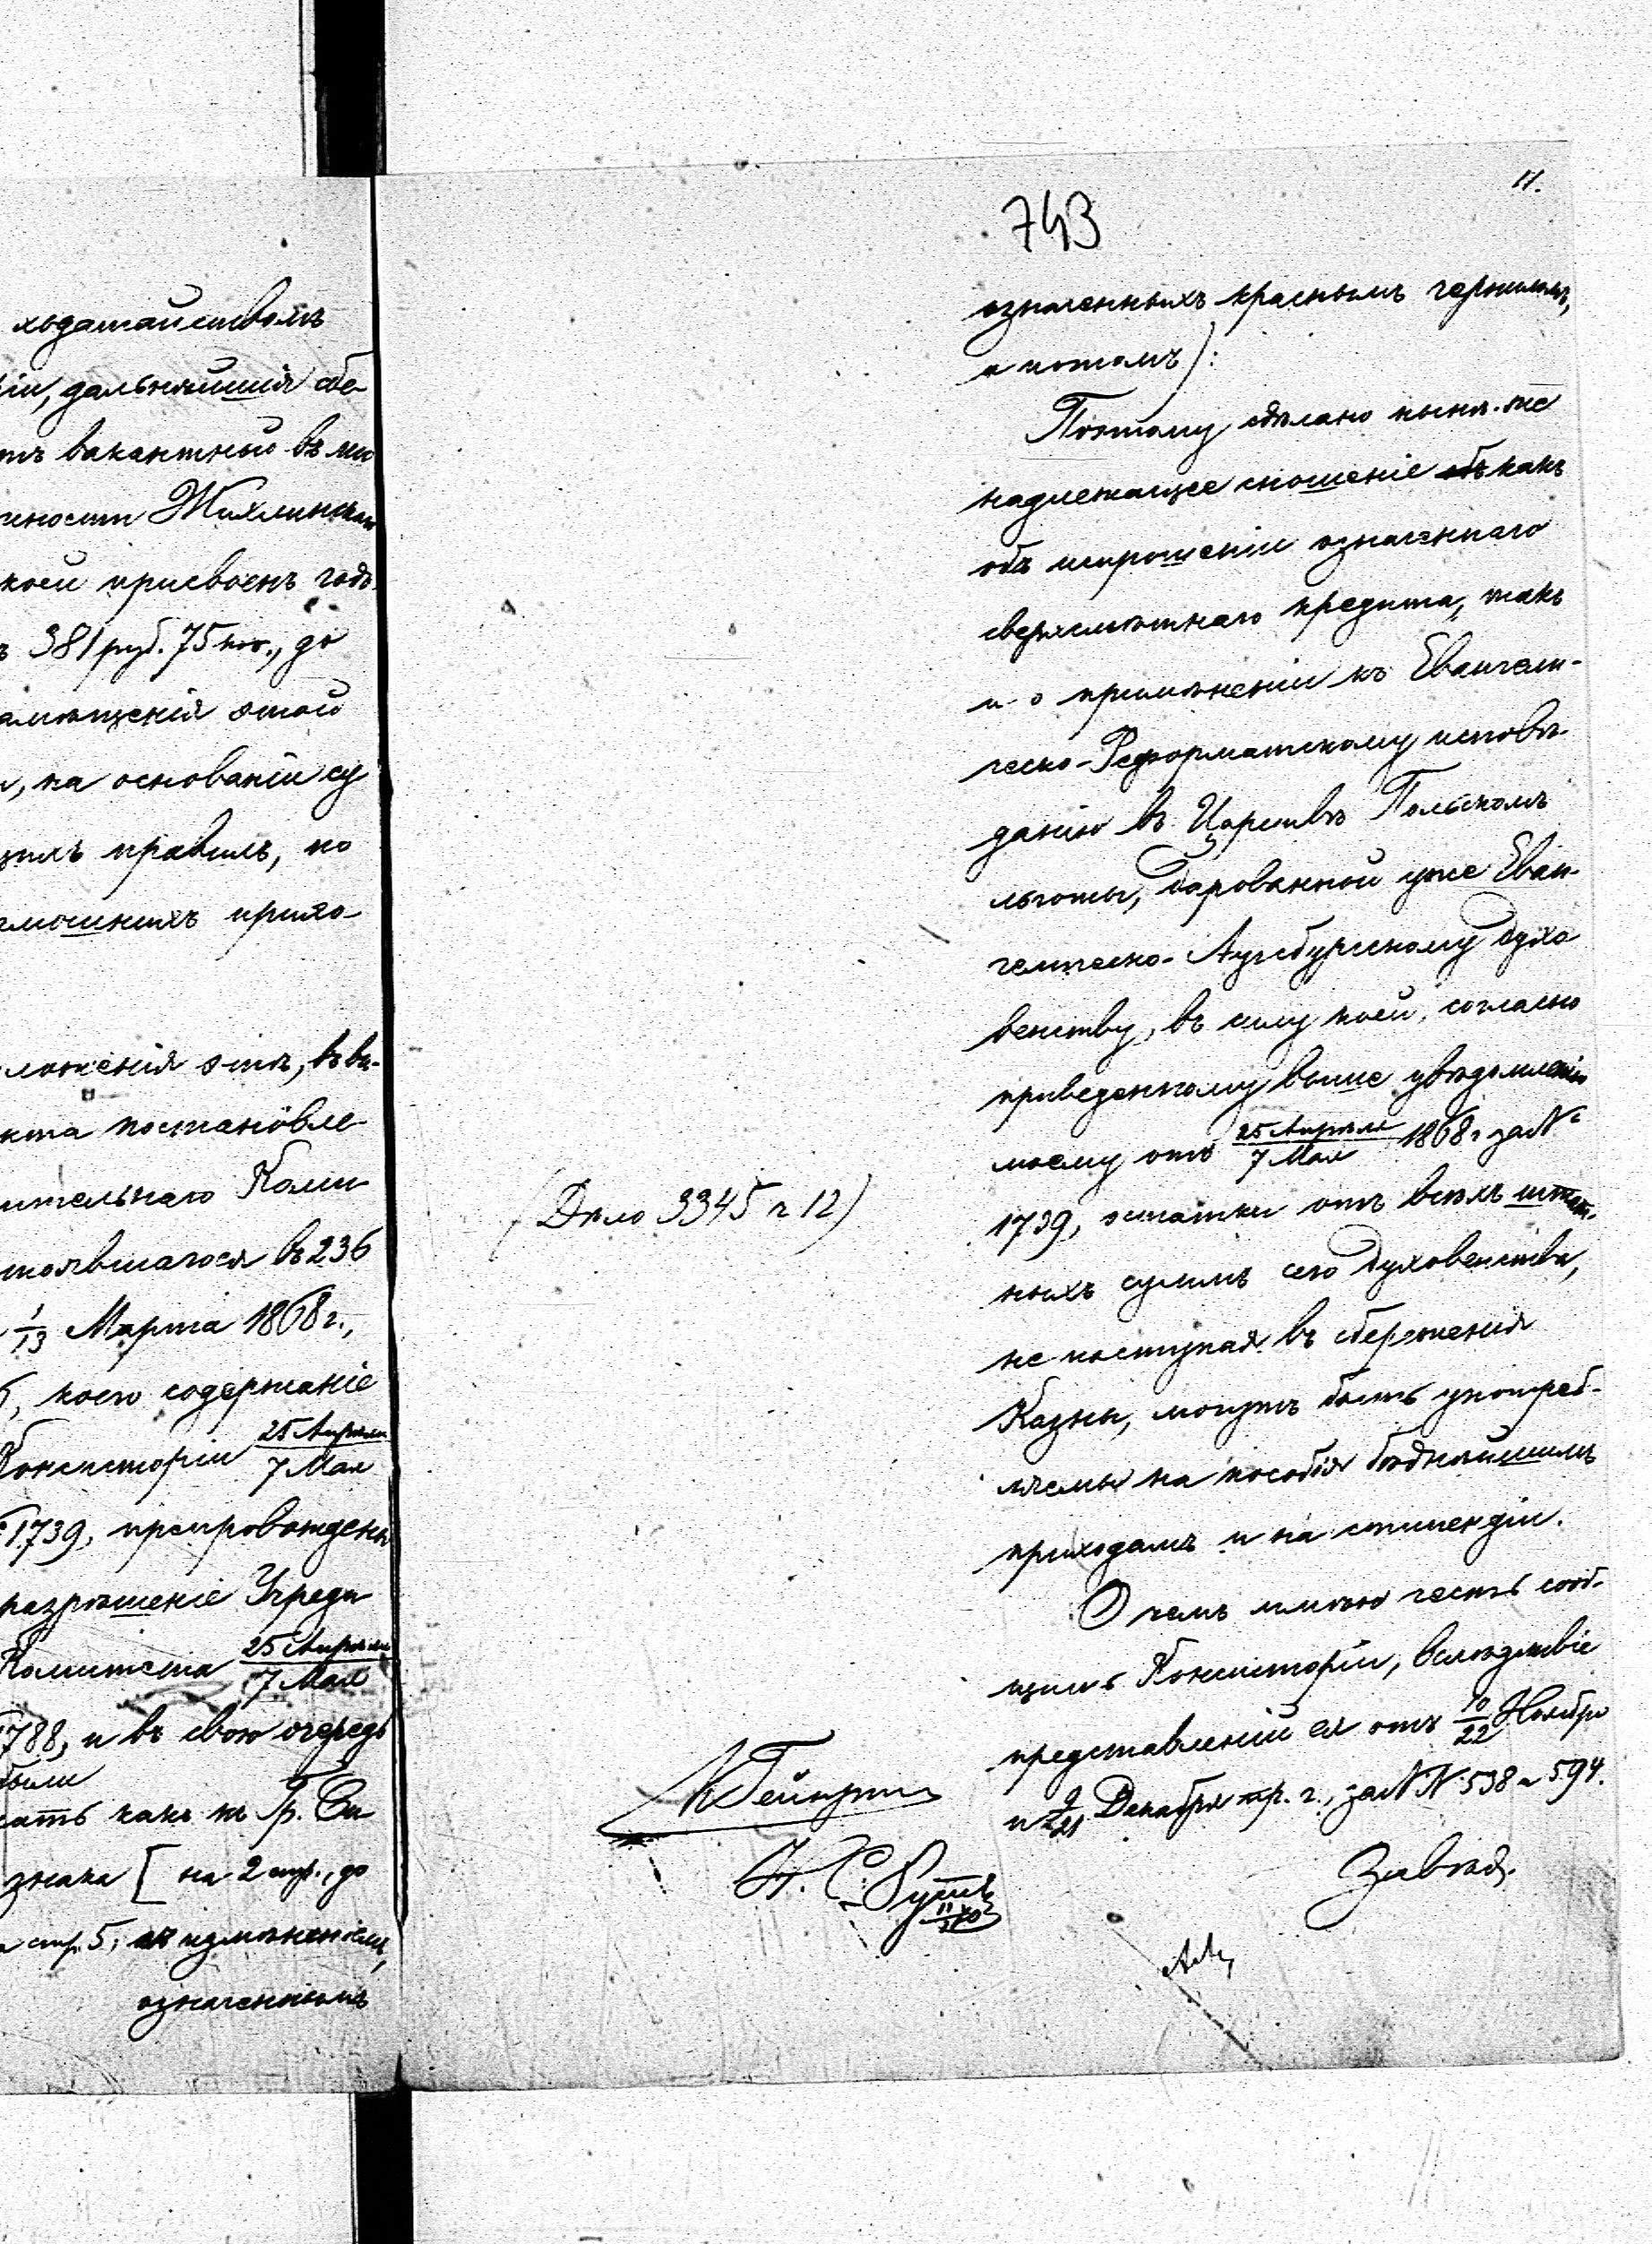 ходатайствомъ
ріи, дальнѣйшія сбе-
вакантный въ
Жихлинской
коей присвоенъ годъ.
381 руб. 75 коп., до
замѣщенія этой
, на основаніи су
правилъ, по
прихо-
ложенія эти, въ ви-
постановле-
ительнаго Коми
стоявшагося въ 236
1/13 Марта 1868 г.,
, коего содержаніе
Консисторіи 25 Апрѣля/7 Мая
1739, препровождены
разрѣшеніе Учреди
Комитета 25 Апрѣля/7 Мая
1788, и въ свою очередь
были
какъ къ Гр.
знака [ на 2 стр., до
стр. 5, измѣненіемъ,
означеннымъ
11.
743
означенныхъ краснымъ чернилам,
и потомъ):
Поэтому сдѣлано нынѣ-же
надлежащее сношеніе какъ
объ испрошеніи означеннаго
сверхсмѣтнаго кредита, такъ
и о примѣненіи къ Евангели-
ческо-Реформатскому исповѣ-
данію въ Царствѣ Польскомъ
льготы, дарованной уже Еван-
гелическо-Аугсбургскому духо
венству, въ силу коей, согласно
приведенному выше увѣдомленію
моему отъ 25 Апрѣля/7 Мая 1868 г. за №
1739, остатки отъ всѣхъ штат-
ныхъ суммъ сего духовенства,
не поступая въ сбереженія
Казны, могутъ быть употреб-
ляемы на пособія бѣднѣйшимъ
приходамъ и на стипендіи.
О чемъ имѣю честь сооб-
щить Консисторіи, вслѣдствіе
представленій ея отъ 10/22 Ноября
и 9/21 Декабря пр. г., за №№ 538 и 594.
(Дѣло 3345 ч 12)
Завѣд.